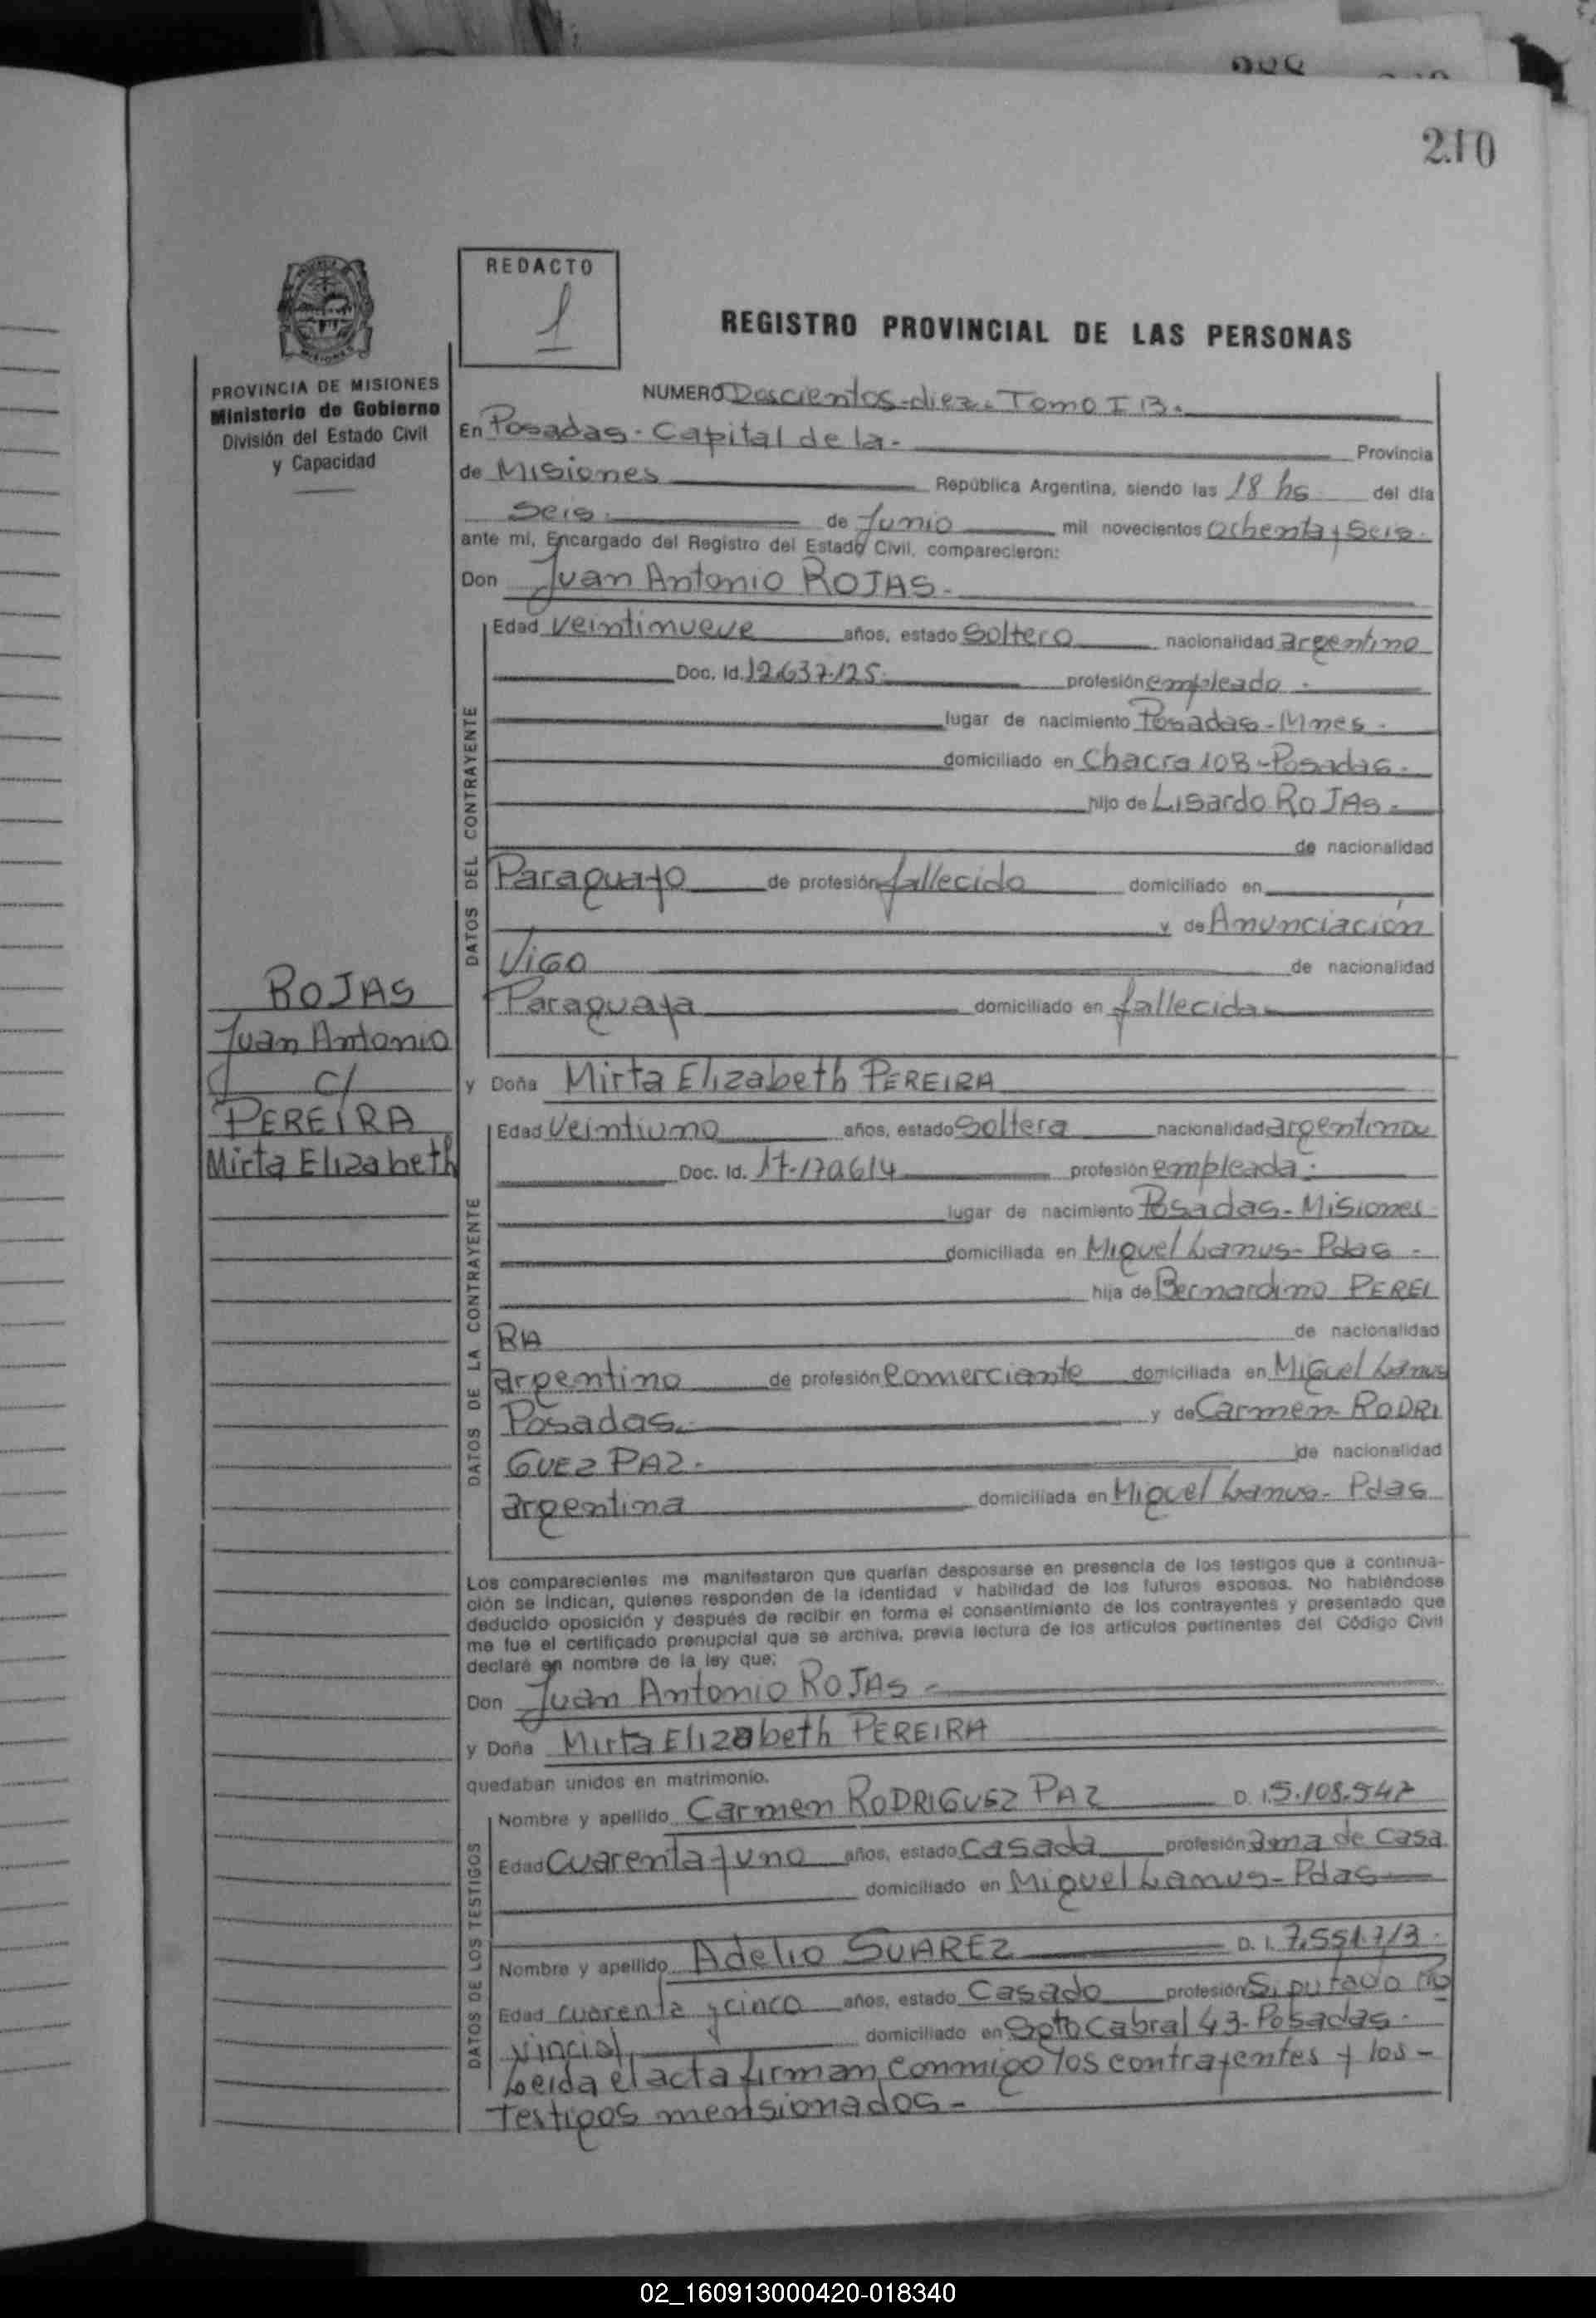 210
REDACTO
1
REGISTRO PROVINCIAL DE LAS PERSONAS
PROVINCIA DE MISIONES
Ministerio de Gobierno
División del Estado Civil
y Capacidad
NUMERO Doscientos-diez. Tomo I B.
En Posadas. Capital de la. Provincia
de Misiones República Argentina, siendo las 18 hs del día
Seis. de Junio mil novecientos Ochenta y Seis.
ante mi, Encargado del Registro del Estado Civil, comparecieron:
Don Juan Antonio ROJAS.
Edad veintinueve años, estado Soltero nacionalidad argentino
Doc. Id. 12.637.125. profesión empleado.
lugar de nacimiento Posadas-Mnes.
domiciliado en Chacra 108-Posadas.
hijo de Lisardo ROJAS.
de nacionalidad
Paraguayo de profesión fallecido domiciliado en
y de Anunciación
VIGO de nacionalidad
Paraguaya domiciliado en fallecida
DATOS DEL CONTRAYENTE
ROJAS
Juan Antonio
C/
PEREIRA
Mirta Elizabeth
y Doña Mirta Elizabeth PEREIRA
Edad Veintiuno años, estado Soltera nacionalidad argentina
Doc. Id. 17.170.614 profesión empleada.
lugar de nacimiento Posadas-Misiones
domiciliada en Miguel Lanus-Pdas.
hija de Bernardino PEREI
RA de nacionalidad
argentino de profesión Comerciante domiciliada en Miguel Lanus
Posadas. y de Carmen RODRI
GUEZ PAZ. de nacionalidad
argentina domiciliada en Miguel Lanus-Pdas
DATOS DE LA CONTRAYENTE
Los comparecientes me manifestaron que querían desposarse en presencia de los testigos que a continua-
ción se indican, quienes responden de la identidad y habilidad de los futuros esposos. No habiéndose
deducido oposición y después de recibir en forma el consentimiento de los contrayentes y presentado que
me fue el certificado prenupcial que se archiva, previa lectura de los artículos pertinentes del Código Civil
declaré en nombre de la ley que:
Don Juan Antonio ROJAS.
y Doña Mirta Elizabeth PEREIRA
quedaban unidos en matrimonio.
Nombre y apellido Carmen RODRIGUEZ PAZ D. I. 5.108.547
Edad Cuarenta y uno años, estado Casada profesión ama de casa
domiciliado en Miguel Lanus-Pdas
Nombre y apellido Adelio SUAREZ D. I. 7.551.713.
Edad cuarenta y cinco años, estado Casado profesión Diputado Pro
vincial domiciliado en Soto Cabral 43-Posadas.
Leida el acta firman conmigo los contrayentes y los-
Testigos mensionados-
DATOS DE LOS TESTIGOS
02_160913000420-018340